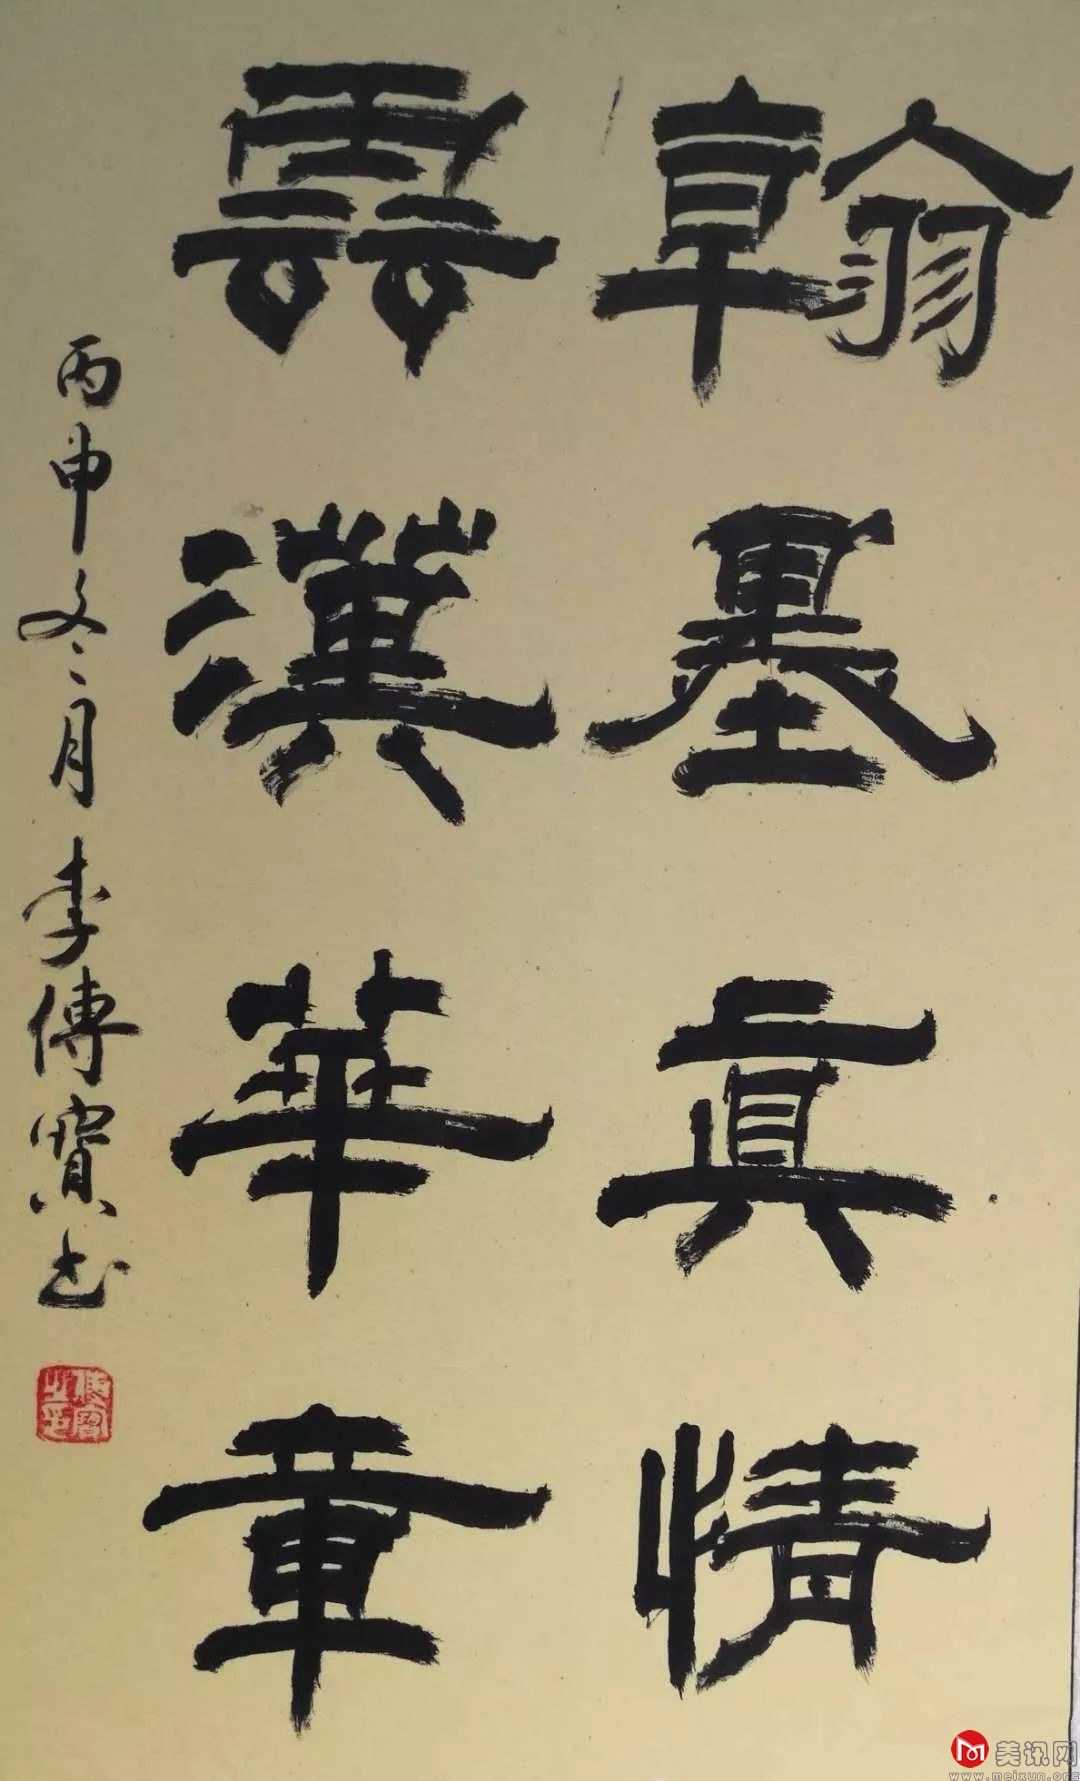 翰墨真情
雲漢華章
丙申冬月李傳寶书
傳寶之印
美讯网
www.meixun.org